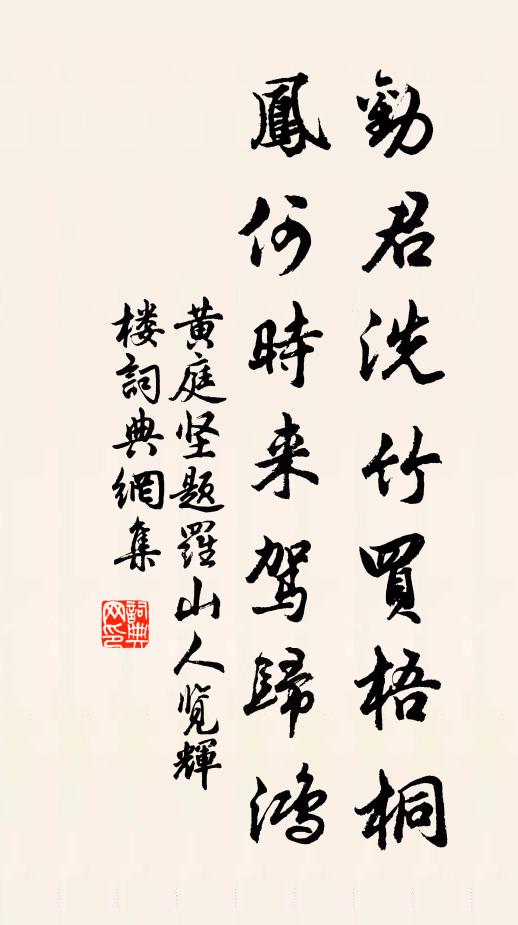 勸君洗竹買梧桐
鳳何時來駕歸鴻
黄庭坚题羅山人覽輝
楼詞典網集
詞典網印